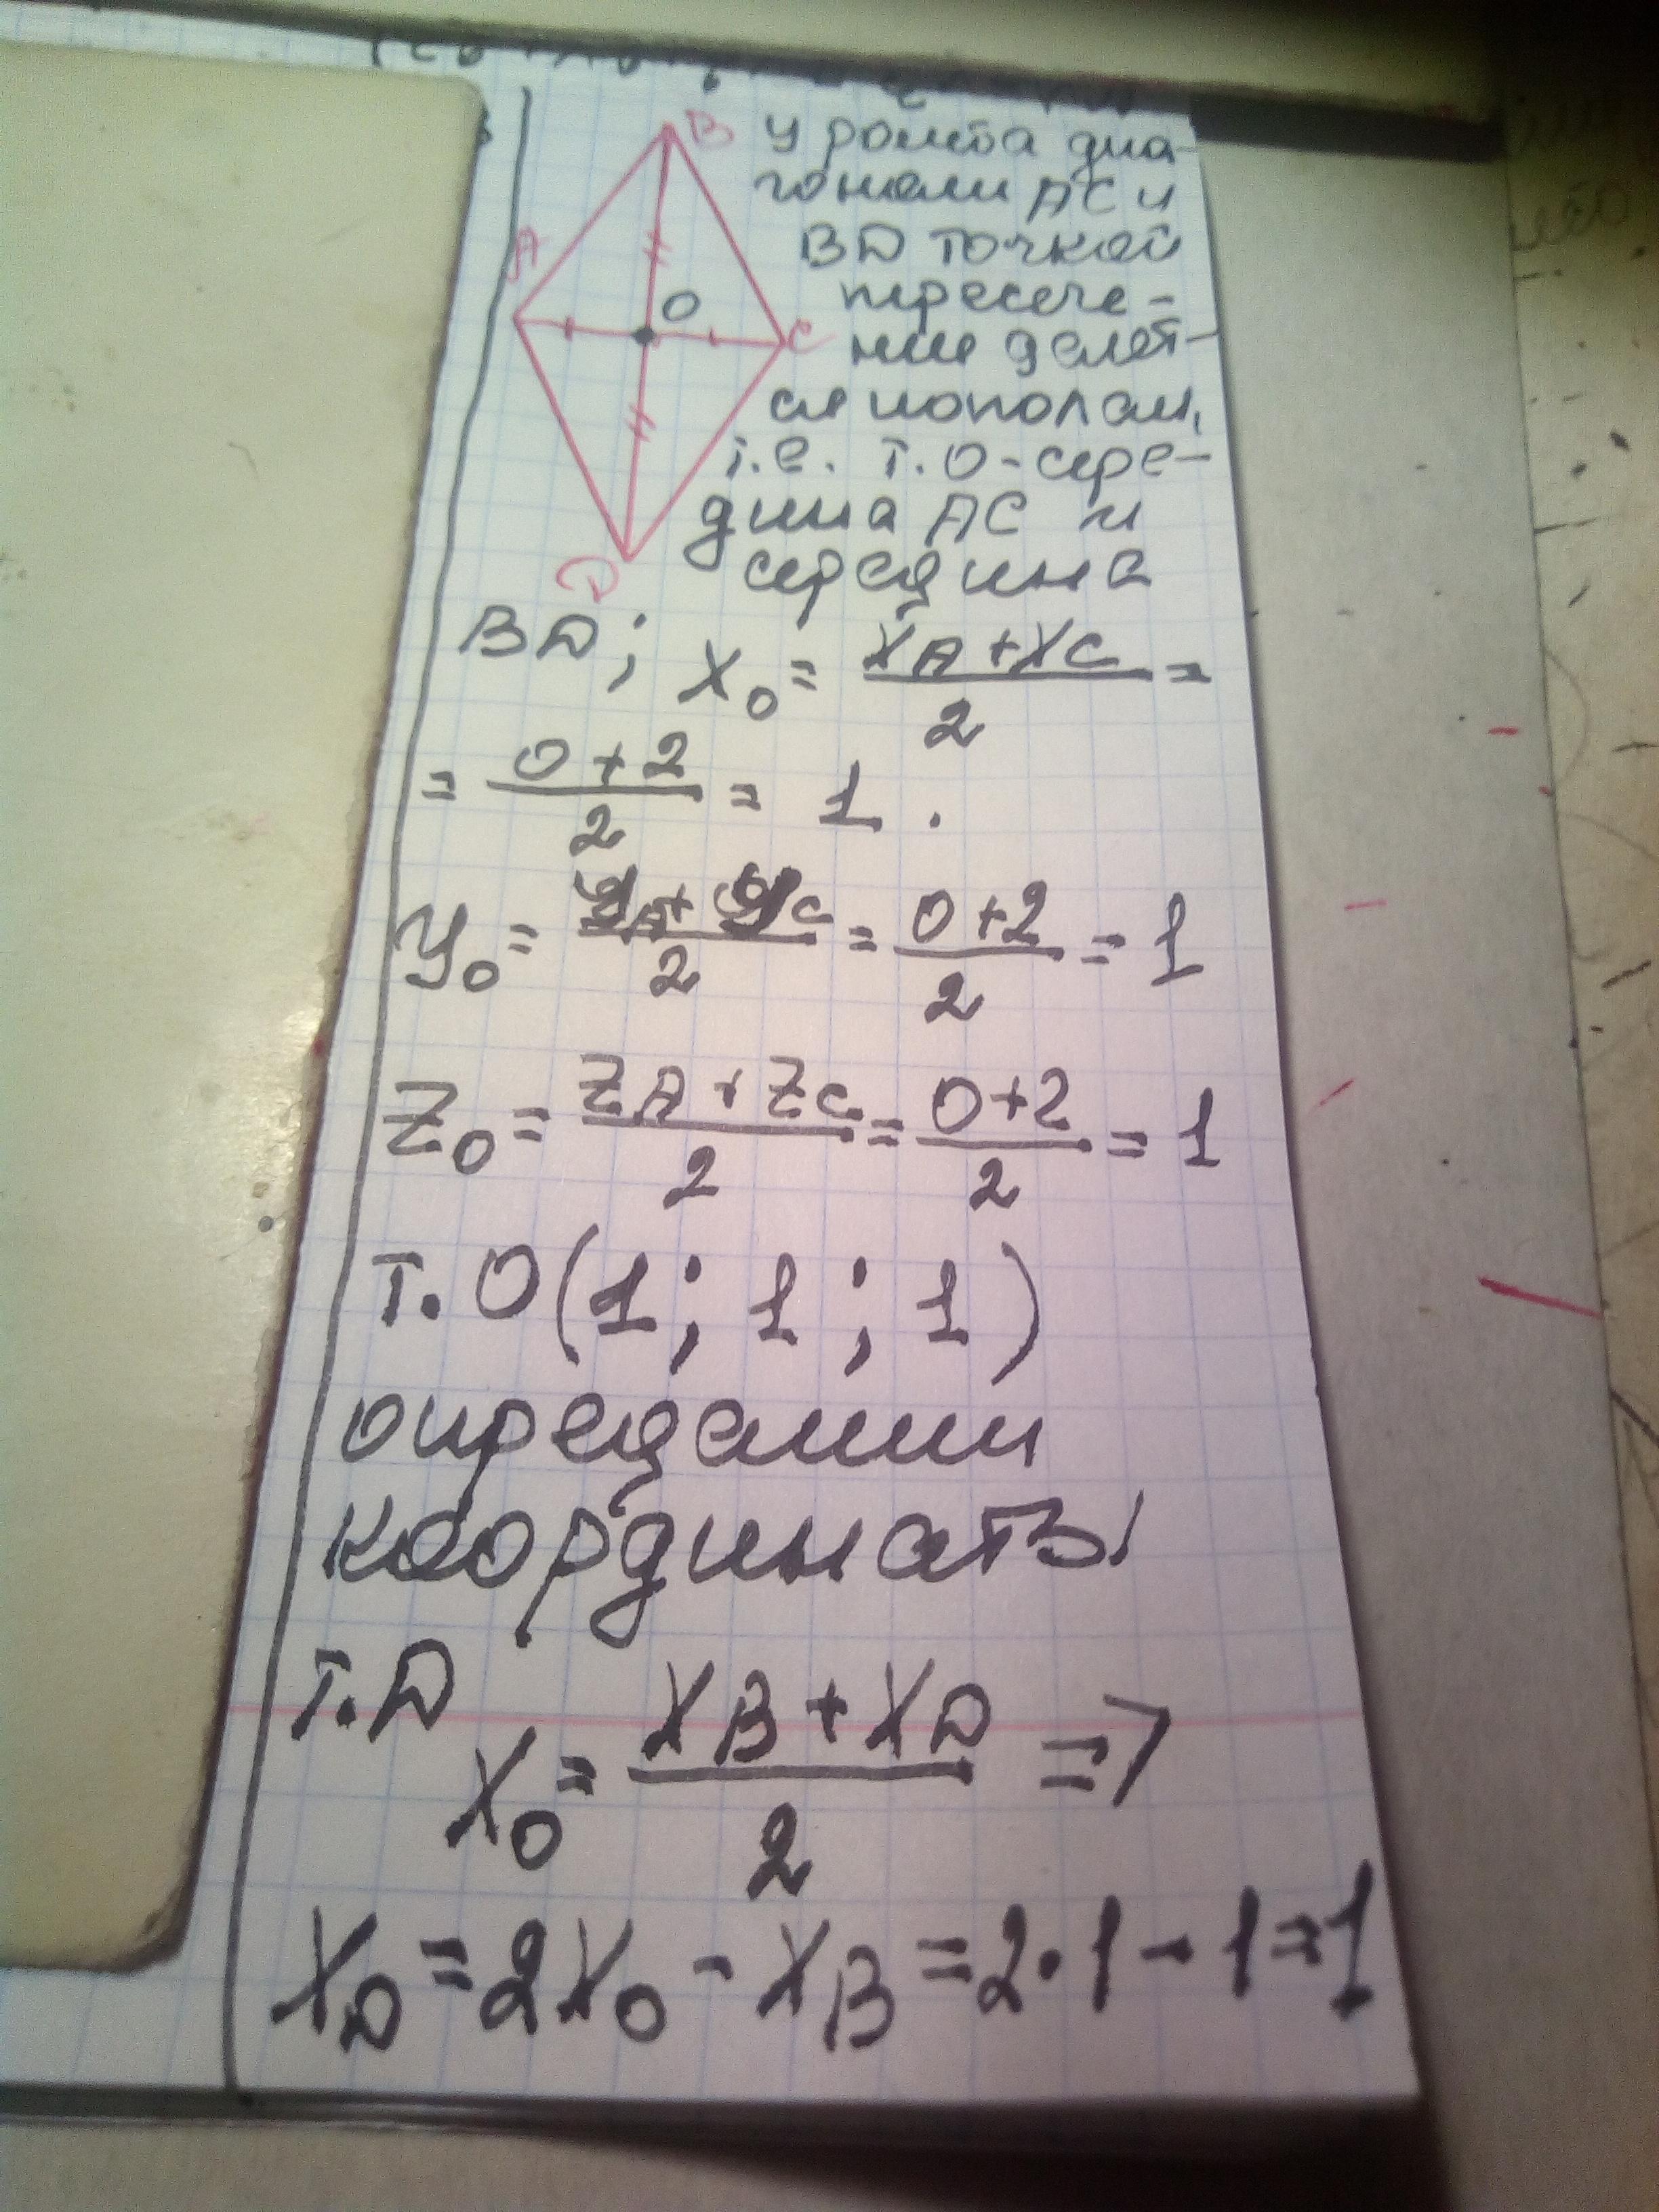 B
A
O
C
D
У ромба диа-
гонали AC и
BD точкой
пересече-
нии делят-
ся пополам,
т.е. т. O - сере-
дина AC и
середина
BD; X₀ = (XA + XC)/2 =
= (0 + 2)/2 = 1.
y₀ = (yA + yC)/2 = (0 + 2)/2 = 1
Z₀ = (ZA + ZC)/2 = (0 + 2)/2 = 1
т. O (1; 1; 1)
определим
координаты
т. D
X₀ = (XB + XD)/2 =>
XD = 2X₀ - XB = 2·1 - 1 = 1